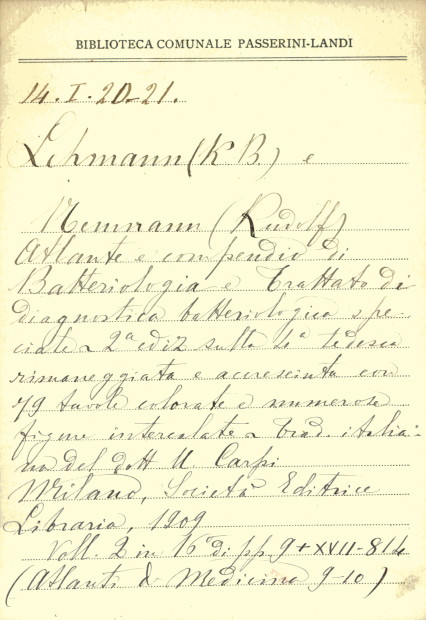 BIBLIOTECA COMUNALE PASSERINI-LANDI
14. I. 20-21.
Lehmann (K B) e
Neumann (Rudolf)
Atlante e compendio di
Batteriologia e trattato di
diagnostica batteriologica spe-
ciale - 2ª ediz sulla 4ª tedesca
rimaneggiata e accresciuta con
79 tavole colorate e numerose
figure intercalate - trad. italia-
na del dott U. Carpi
Milano, Società Editrice
Libraria, 1909
Voll. 2 in 16° di pp. 9 + XVII-814
(Atlanti di Medicina 9-10)